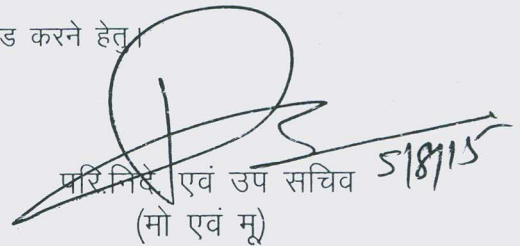 ड करने हेतु।
परि.निदे. एवं उप सचिव 5/8/15
(मो एवं मू)